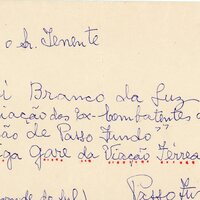 o Sr. Tenente
i Branco da Luz
iação dos Ex-combatentes d
ão de Passo Fundo"
iga Gare da Viação Férrea
ande do Sul)
Passo Fu